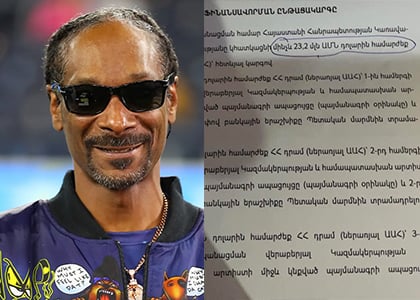 ՖԻՆԱՆՍԱՎՈՐՄԱՆ ԸՆԹԱՑԱԿԱՐԳԸ
նացման համար Հայաստանի Հանրապետության Կառավա-
թյանը կհատկացնի մինչև 23,2 մլն ԱՄՆ դոլարին համարժեք
ՀՀ) հետևյալ կարգով
դոլարին համարժեք ՀՀ դրամ (ներառյալ ԱԱՀ)՝ 1-ին համերգի
վերաբերյալ Կազմակերպության և համապատասխան ար-
ված պայմանագրի ապացույցը (պայմանագրի օրինակը) և
փով բանկային երաշխիքը Պետական մարմնին տրամա-
դոլարին համարժեք ՀՀ դրամ (ներառյալ ԱԱՀ)՝ 2-րդ համերգի
երաբերյալ Կազմակերպության և համապատասխան արտիստ
պայմանագրի ապացույցը (պայմանագրի օրինակը) և 2-րդ
անկային երաշխիքը Պետական մարմնին տրամադրելու
դոլարին համարժեք ՀՀ դրամ (ներառյալ ԱԱՀ)՝ 3-
նացման վերաբերյալ Կազմակերպության
արտիստի միջև կնքված պայմանագրի ապացույց
WHY
MUST I
FEEL LIKE
DAT